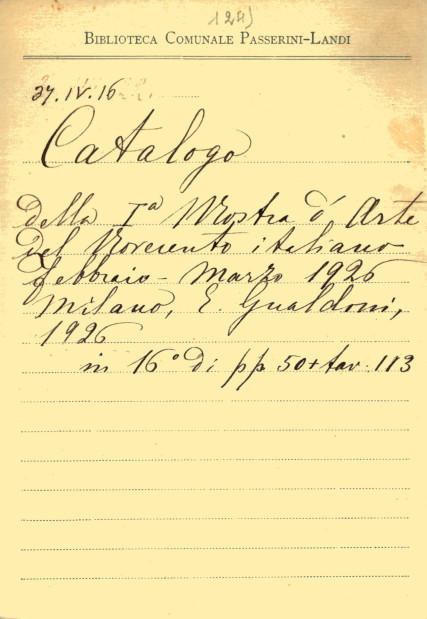 124)
BIBLIOTECA COMUNALE PASSERINI-LANDI
37.IV.16
Catalogo
della Iª Mostra d'Arte
del Novecento italiano
febbraio - Marzo 1926
Milano, E. Gualdoni,
1926
in 16° di pp 50 + tav. 113